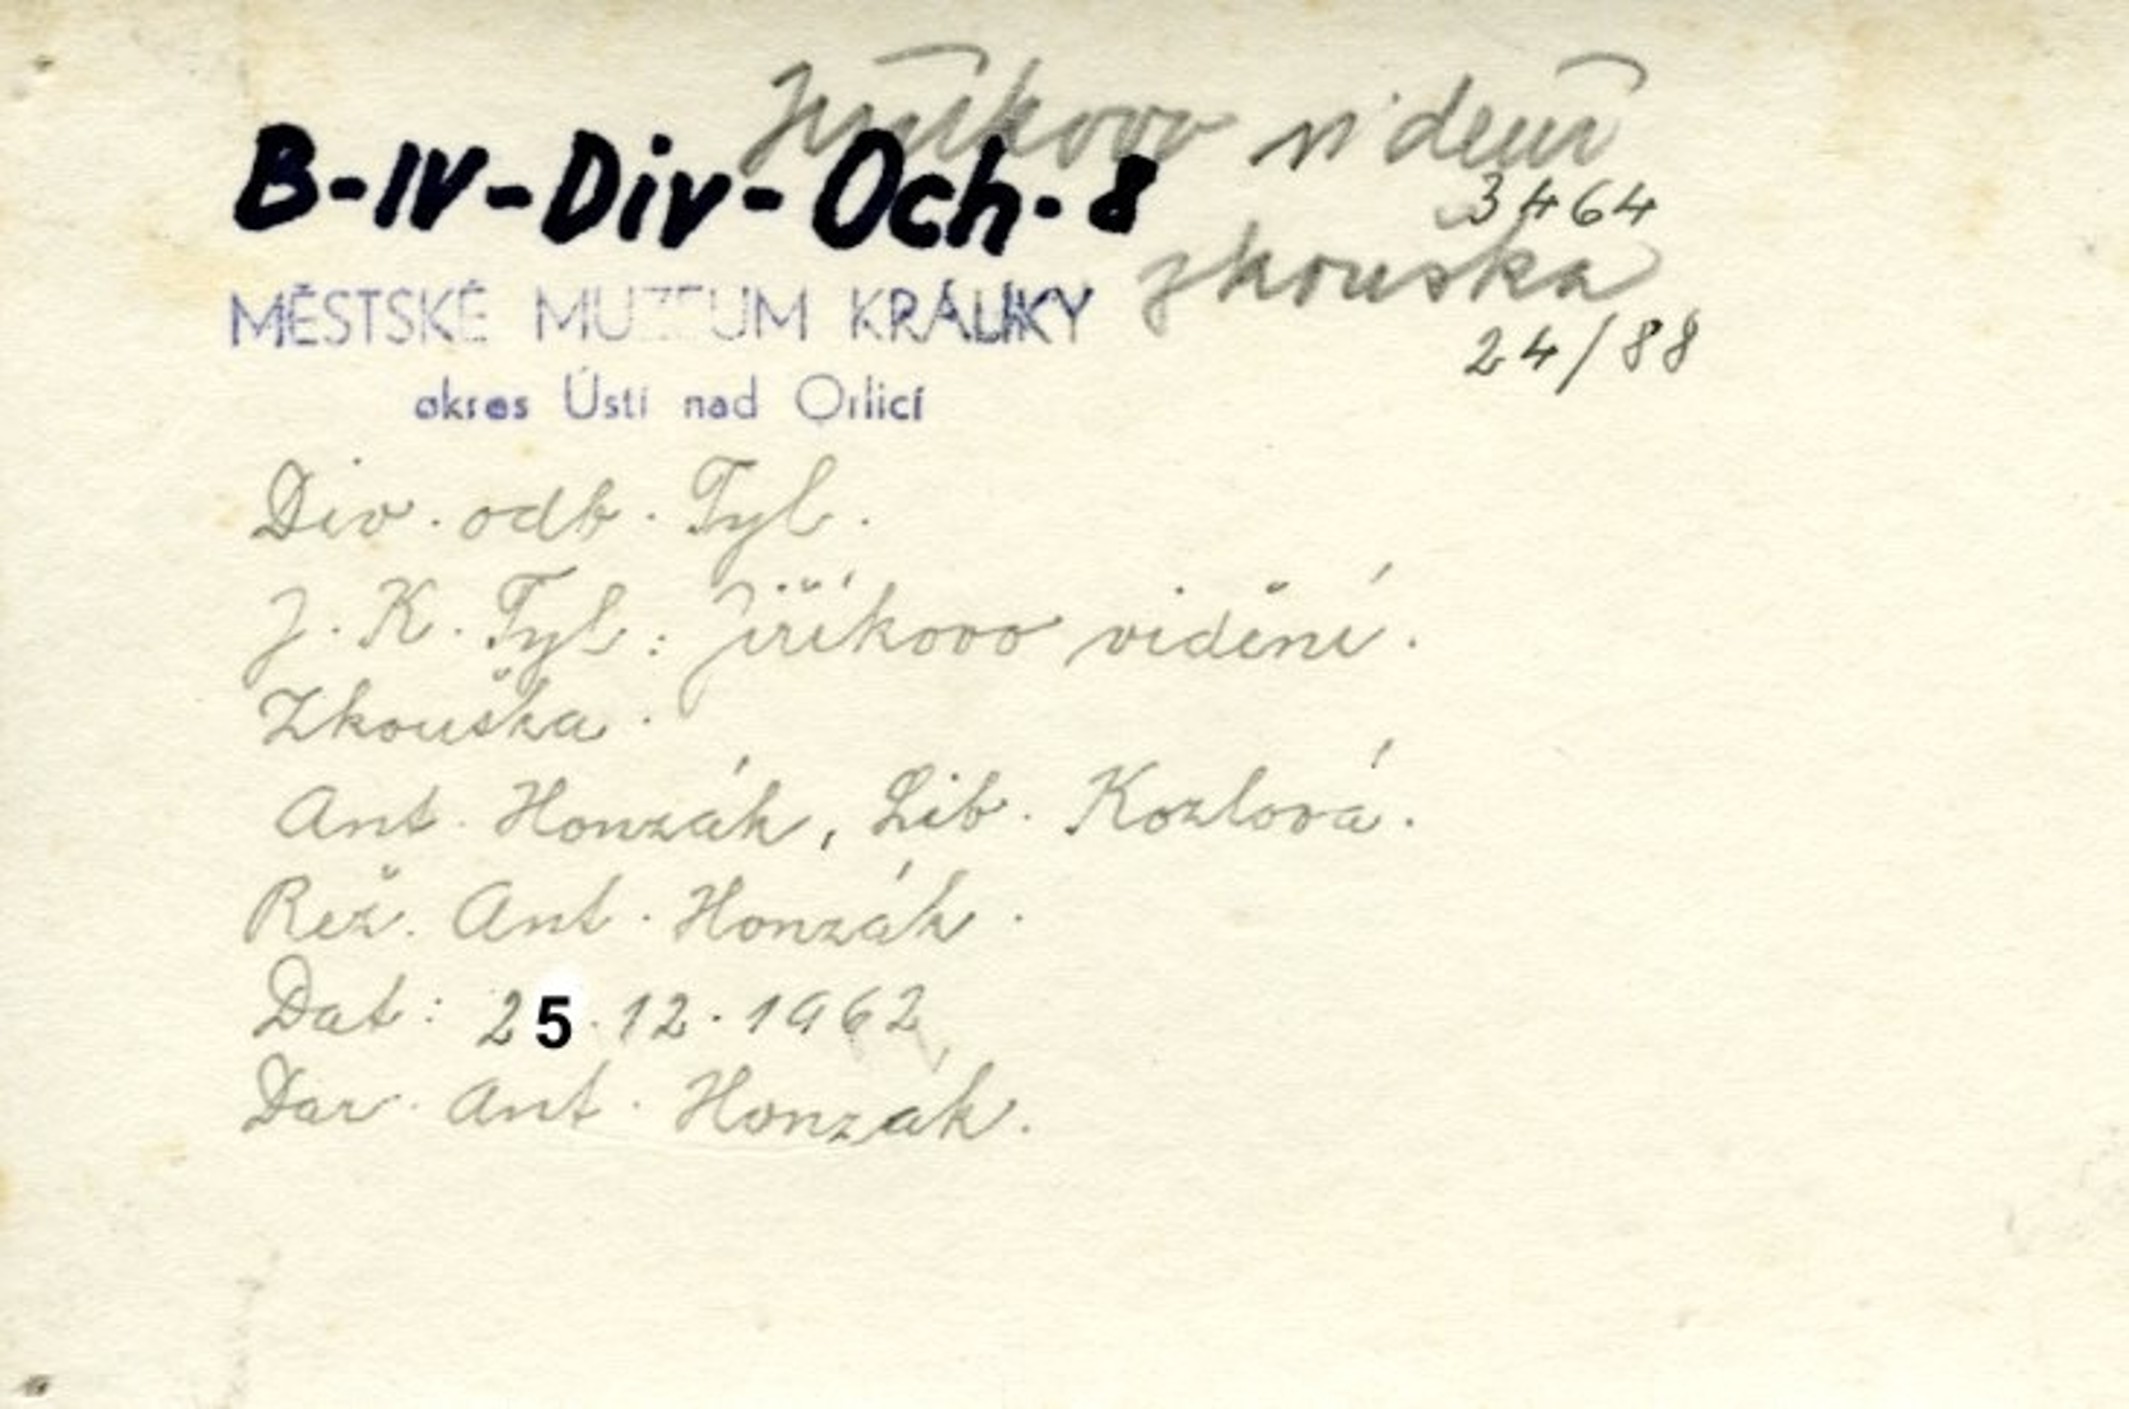 Jiříkovo vidění
B-IV-Div-Och-8
3464
zkouška
MĚSTSKÉ MUZEUM KRÁLÍKY
24/88
okres Ústí nad Orlicí
Div. odb. Tyl.
J. K. Tyl: Jiříkovo vidění.
Zkouška.
Ant. Honzák, Lib. Kozlová.
Rež. Ant. Honzák.
Dat: 25.12.1962
Dar. Ant. Honzák.